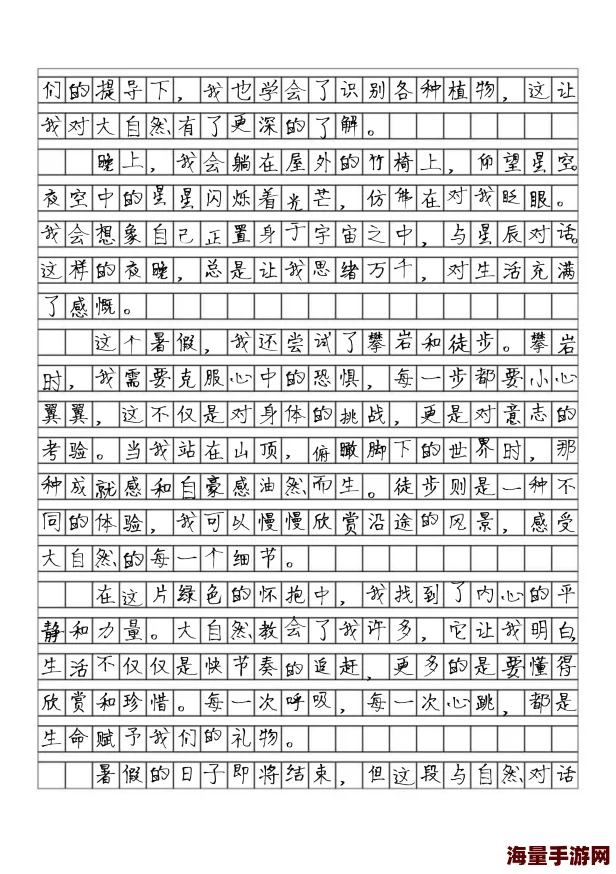 们的提导下，我也学会了识别各种植物，这让
我对大自然有了更深的了解。
晚上，我会躺在屋外的竹椅上，仰望星空。
夜空中的星星闪烁着光芒，仿佛在对我眨眼。
我会想象自己正置身于宇宙之中，与星辰对话。
这样的夜晚，总是让我思绪万千，对生活充满
了感慨。
这个暑假，我还尝试了攀岩和徒步。攀岩
时，我需要克服心中的恐惧，每一步都要小心
翼翼，这不仅是对身体的挑战，更是对意志的
考验。当我站在山顶，俯瞰脚下的世界时，那
种成就感和自豪感油然而生。徒步则是一种不
同的体验，我可以慢慢欣赏沿途的风景，感受
大自然的每一个细节。
在这片绿色的怀抱中，我找到了内心的平
静和力量。大自然教会了我许多，它让我明白，
生活不仅仅是快节奏的追赶，更多的是要懂得
欣赏和珍惜。每一次呼吸，每一次心跳，都是
生命赋予我们的礼物。
暑假的日子即将结束，但这段与自然对话
海量手游网